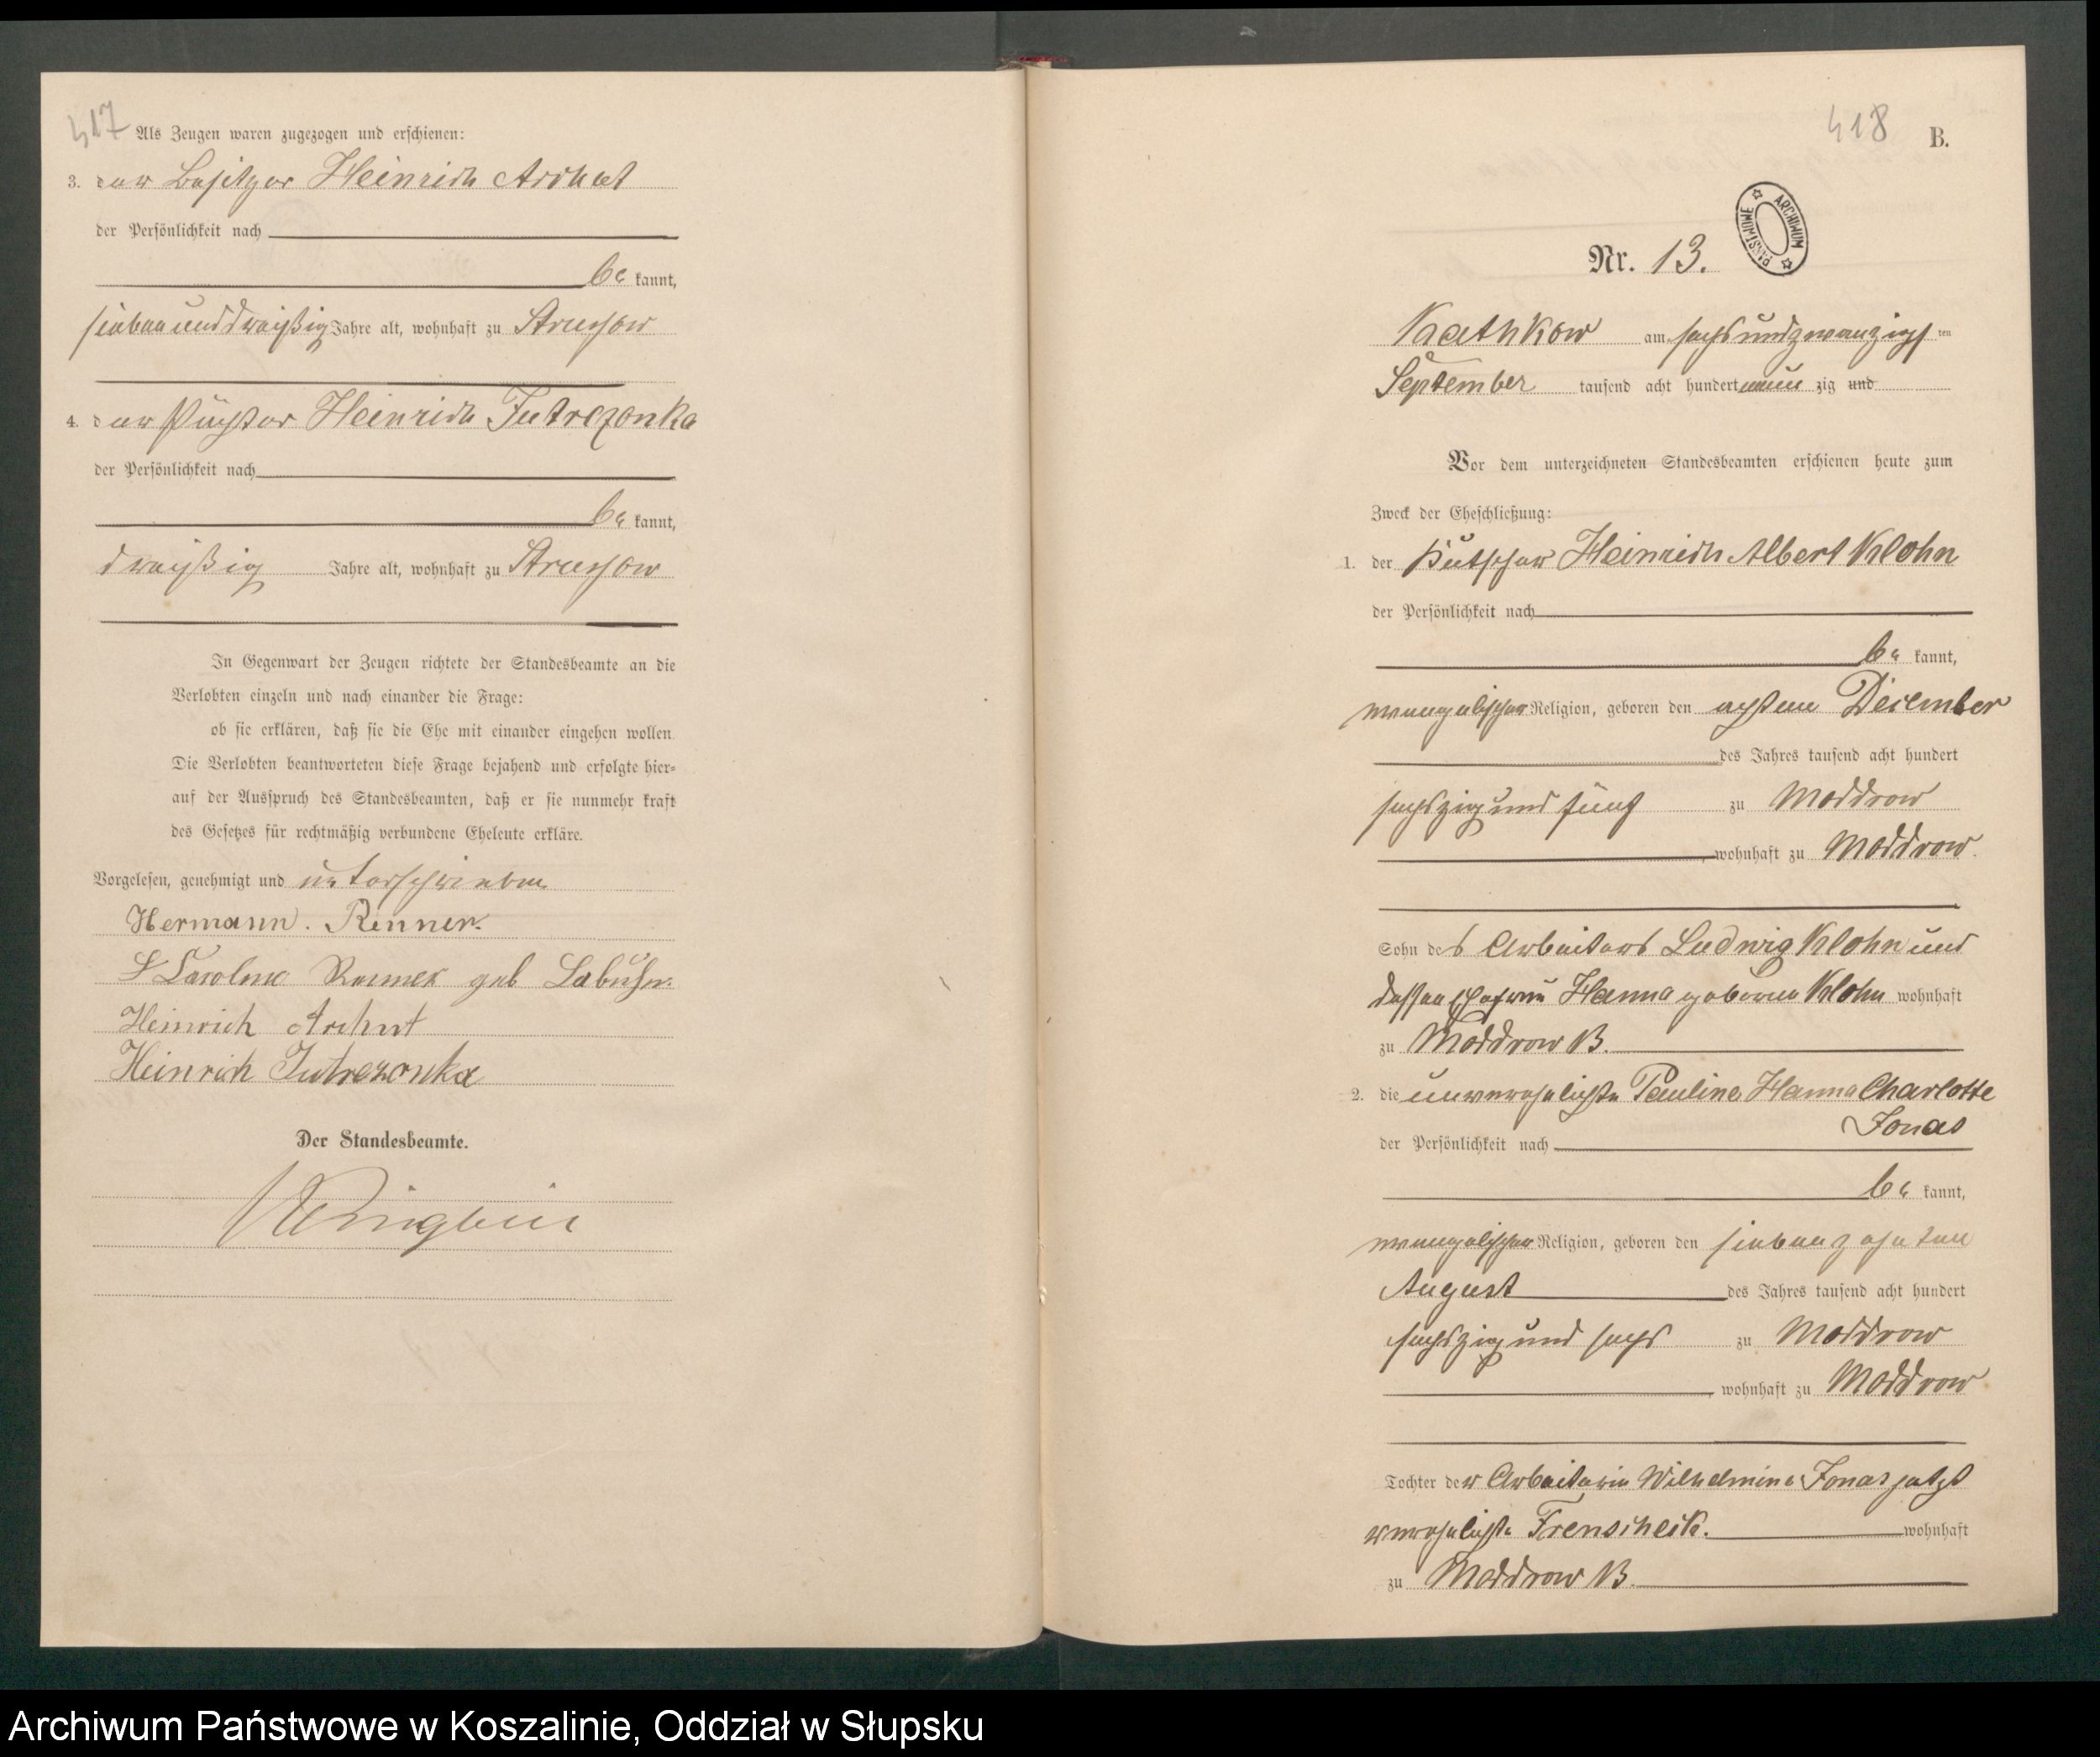 417
Als Zeugen waren zugezogen und erschienen:
3. der Besitzer Heinrich Archut
der Persönlichkeit nach
be kannt,
siebenunddreißig Jahre alt, wohnhaft zu Strussow
4. der Pächter Heinrich Jutrezonka
der Persönlichkeit nach
be kannt,
dreißig Jahre alt, wohnhaft zu Strussow
In Gegenwart der Zeugen richtete der Standesbeamte an die
Verlobten einzeln und nach einander die Frage:
ob sie erklären, daß sie die Ehe mit einander eingehen wollen.
Die Verlobten beantworteten diese Frage bejahend und erfolgte hier=
auf der Ausspruch des Standesbeamten, daß er sie nunmehr kraft
des Gesetzes für rechtmäßig verbundene Eheleute erkläre.
Vorgelesen, genehmigt und unterschrieben
Hermann. Renner.
Caroline Renner geb Labuhn.
Heinrich Archut
Heinrich Jutrezonka
Der Standesbeamte.
418
B.
ARCHIWUM PAŃSTWOWE
Nr. 13.
Kathkow am sechsundzwanzigs ten
September tausend acht hundert neun zig und
Vor dem unterzeichneten Standesbeamten erschienen heute zum
Zweck der Eheschließung:
1. der Kutscher Heinrich Albert Klohn
der Persönlichkeit nach
be kannt,
evangelischer Religion, geboren den achten December
des Jahres tausend acht hundert
sechszig und fünf zu Moddrow
, wohnhaft zu Moddrow.
Sohn des Arbeiters Ludwig Klohn und
dessen Ehefrau Hanna geborne Klohn wohnhaft
zu Moddrow B.
2. die unverehelichte Pauline Hanna Charlotte
Jonas
der Persönlichkeit nach
be kannt,
evangelischer Religion, geboren den siebenzehnten
August des Jahres tausend acht hundert
sechszig und sechs zu Moddrow
, wohnhaft zu Moddrow
Tochter der Arbeiterin Wilhelmine Jonas jetzt
verehelichte Frenscheck. wohnhaft
zu Moddrow B.
Archiwum Państwowe w Koszalinie, Oddział w Słupsku